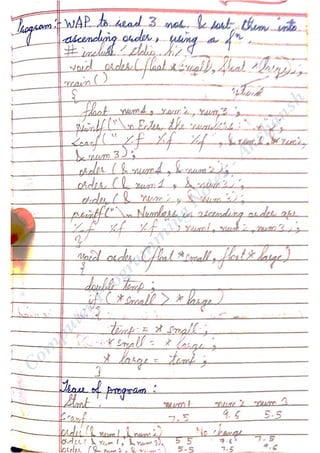 Program:- WAP to read 3 nos. & sort them into
ascending order, using a fⁿ
# include <stdio.h>
void order(float *small, float *large);
main()
{
float num1, num2, num3;
printf("\n Enter the numbers :
scanf(" %f %f %f ", &num1, &num2,
& num3);
order (& num1, & num2);
order (& num1, & num3);
order (& num2, & num3);
printf("\n Numbers ascending order are
%f %f %f num1, num2, num3);
}
void order (float *small, float *large)
{
double temp;
if ( *small > * large)
{
temp = * small;
*small = * large;
* large = temp;
}
Trace of program :
Stmt: num1 num2 num3
Scanf 7.5 9.5 5.5
order (& num1, & num2) No change
order(& num1, & num3) 5.5 9.5 7.5
order (& num2, & num3) 5.5 7.5 9.5